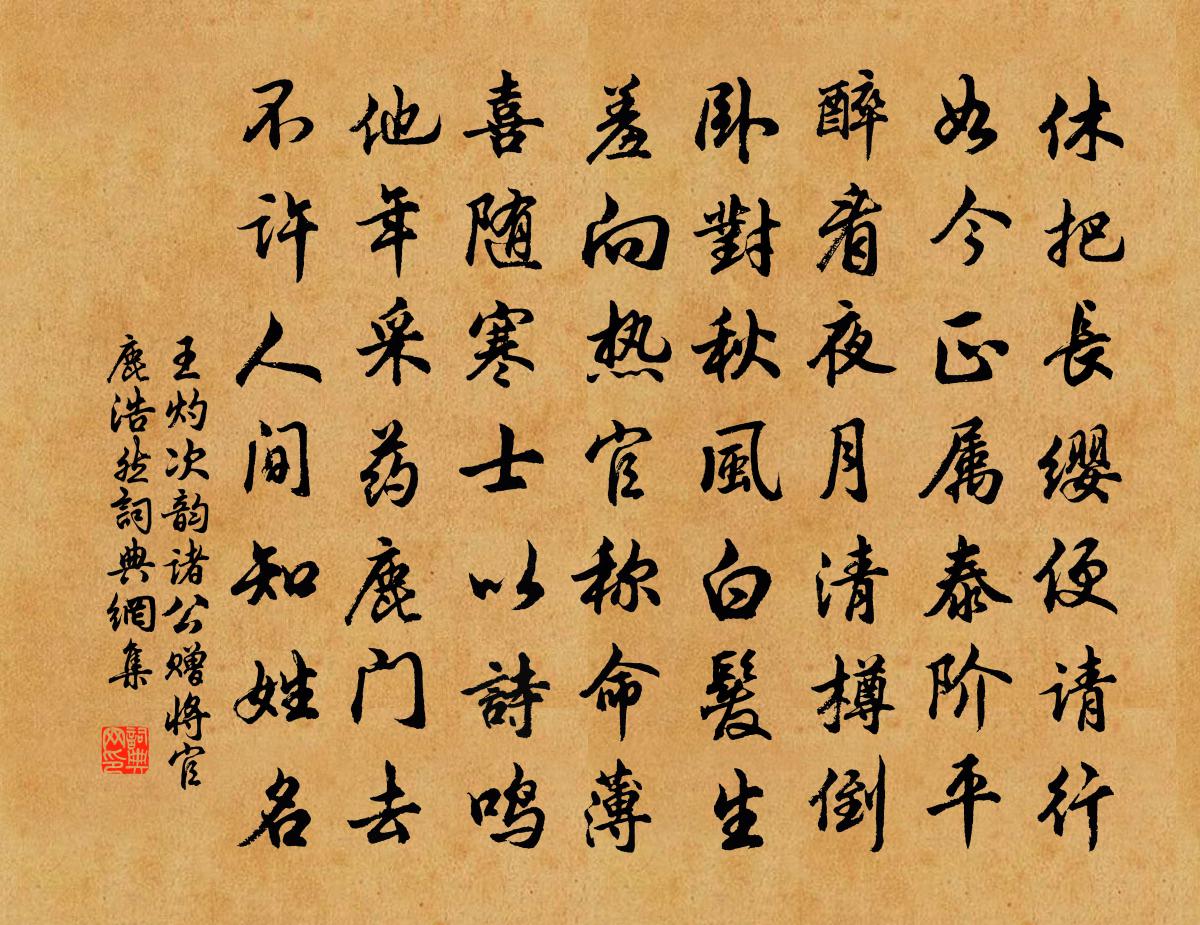 休把長缨便请行
如今正属泰阶平
醉看夜月清樽倒
卧對秋風白髮生
羞向热官称命薄
喜随寒士以詩鸣
他年采药鹿门去
不许人间知姓名
王灼次韵诸公赠将官
鹿浩然詞典網集
詞典
网印